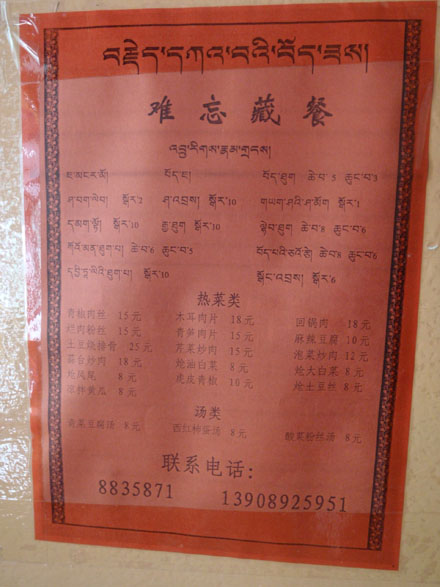 བརྗེད་དཀའ་བའི་བོད་ཟས།
难忘藏餐
འབྲུ་རིགས་རྣམ་གྲངས།
ཇ་མངར་མོ། བོད་ཇ། བོད་ཐུག ཆེ་བ་5 ཆུང་བ་3
ཤ་བག་ལེབ། སྒོར་2 ཤ་འབྲས། སྒོར་10
སྒོར་10 རྒྱ་ཐུག སྒོར་10 ཆེ་བ་8 ཆུང་བ་6
ཆེ་བ་6 ཆུང་བ་5 ཆེ་བ་8 ཆུང་བ་6
སྒོར་10 སྒོར་6
热菜类
青椒肉丝 15元 木耳肉片 18元 回锅肉 18元
烂肉粉丝 15元 青笋肉片 15元 麻辣豆腐 10元
土豆烧排骨 25元 芹菜炒肉 15元 泡菜炒肉 12元
蒜台炒肉 18元 炝油白菜 8元 炝大白菜 8元
炝凤尾 8元 虎皮青椒 10元 炝土豆丝 8元
凉拌黄瓜 8元
汤类
青菜豆腐汤 8元 西红柿蛋汤 8元 酸菜粉丝汤 8元
联系电话:
8835871 13908925951